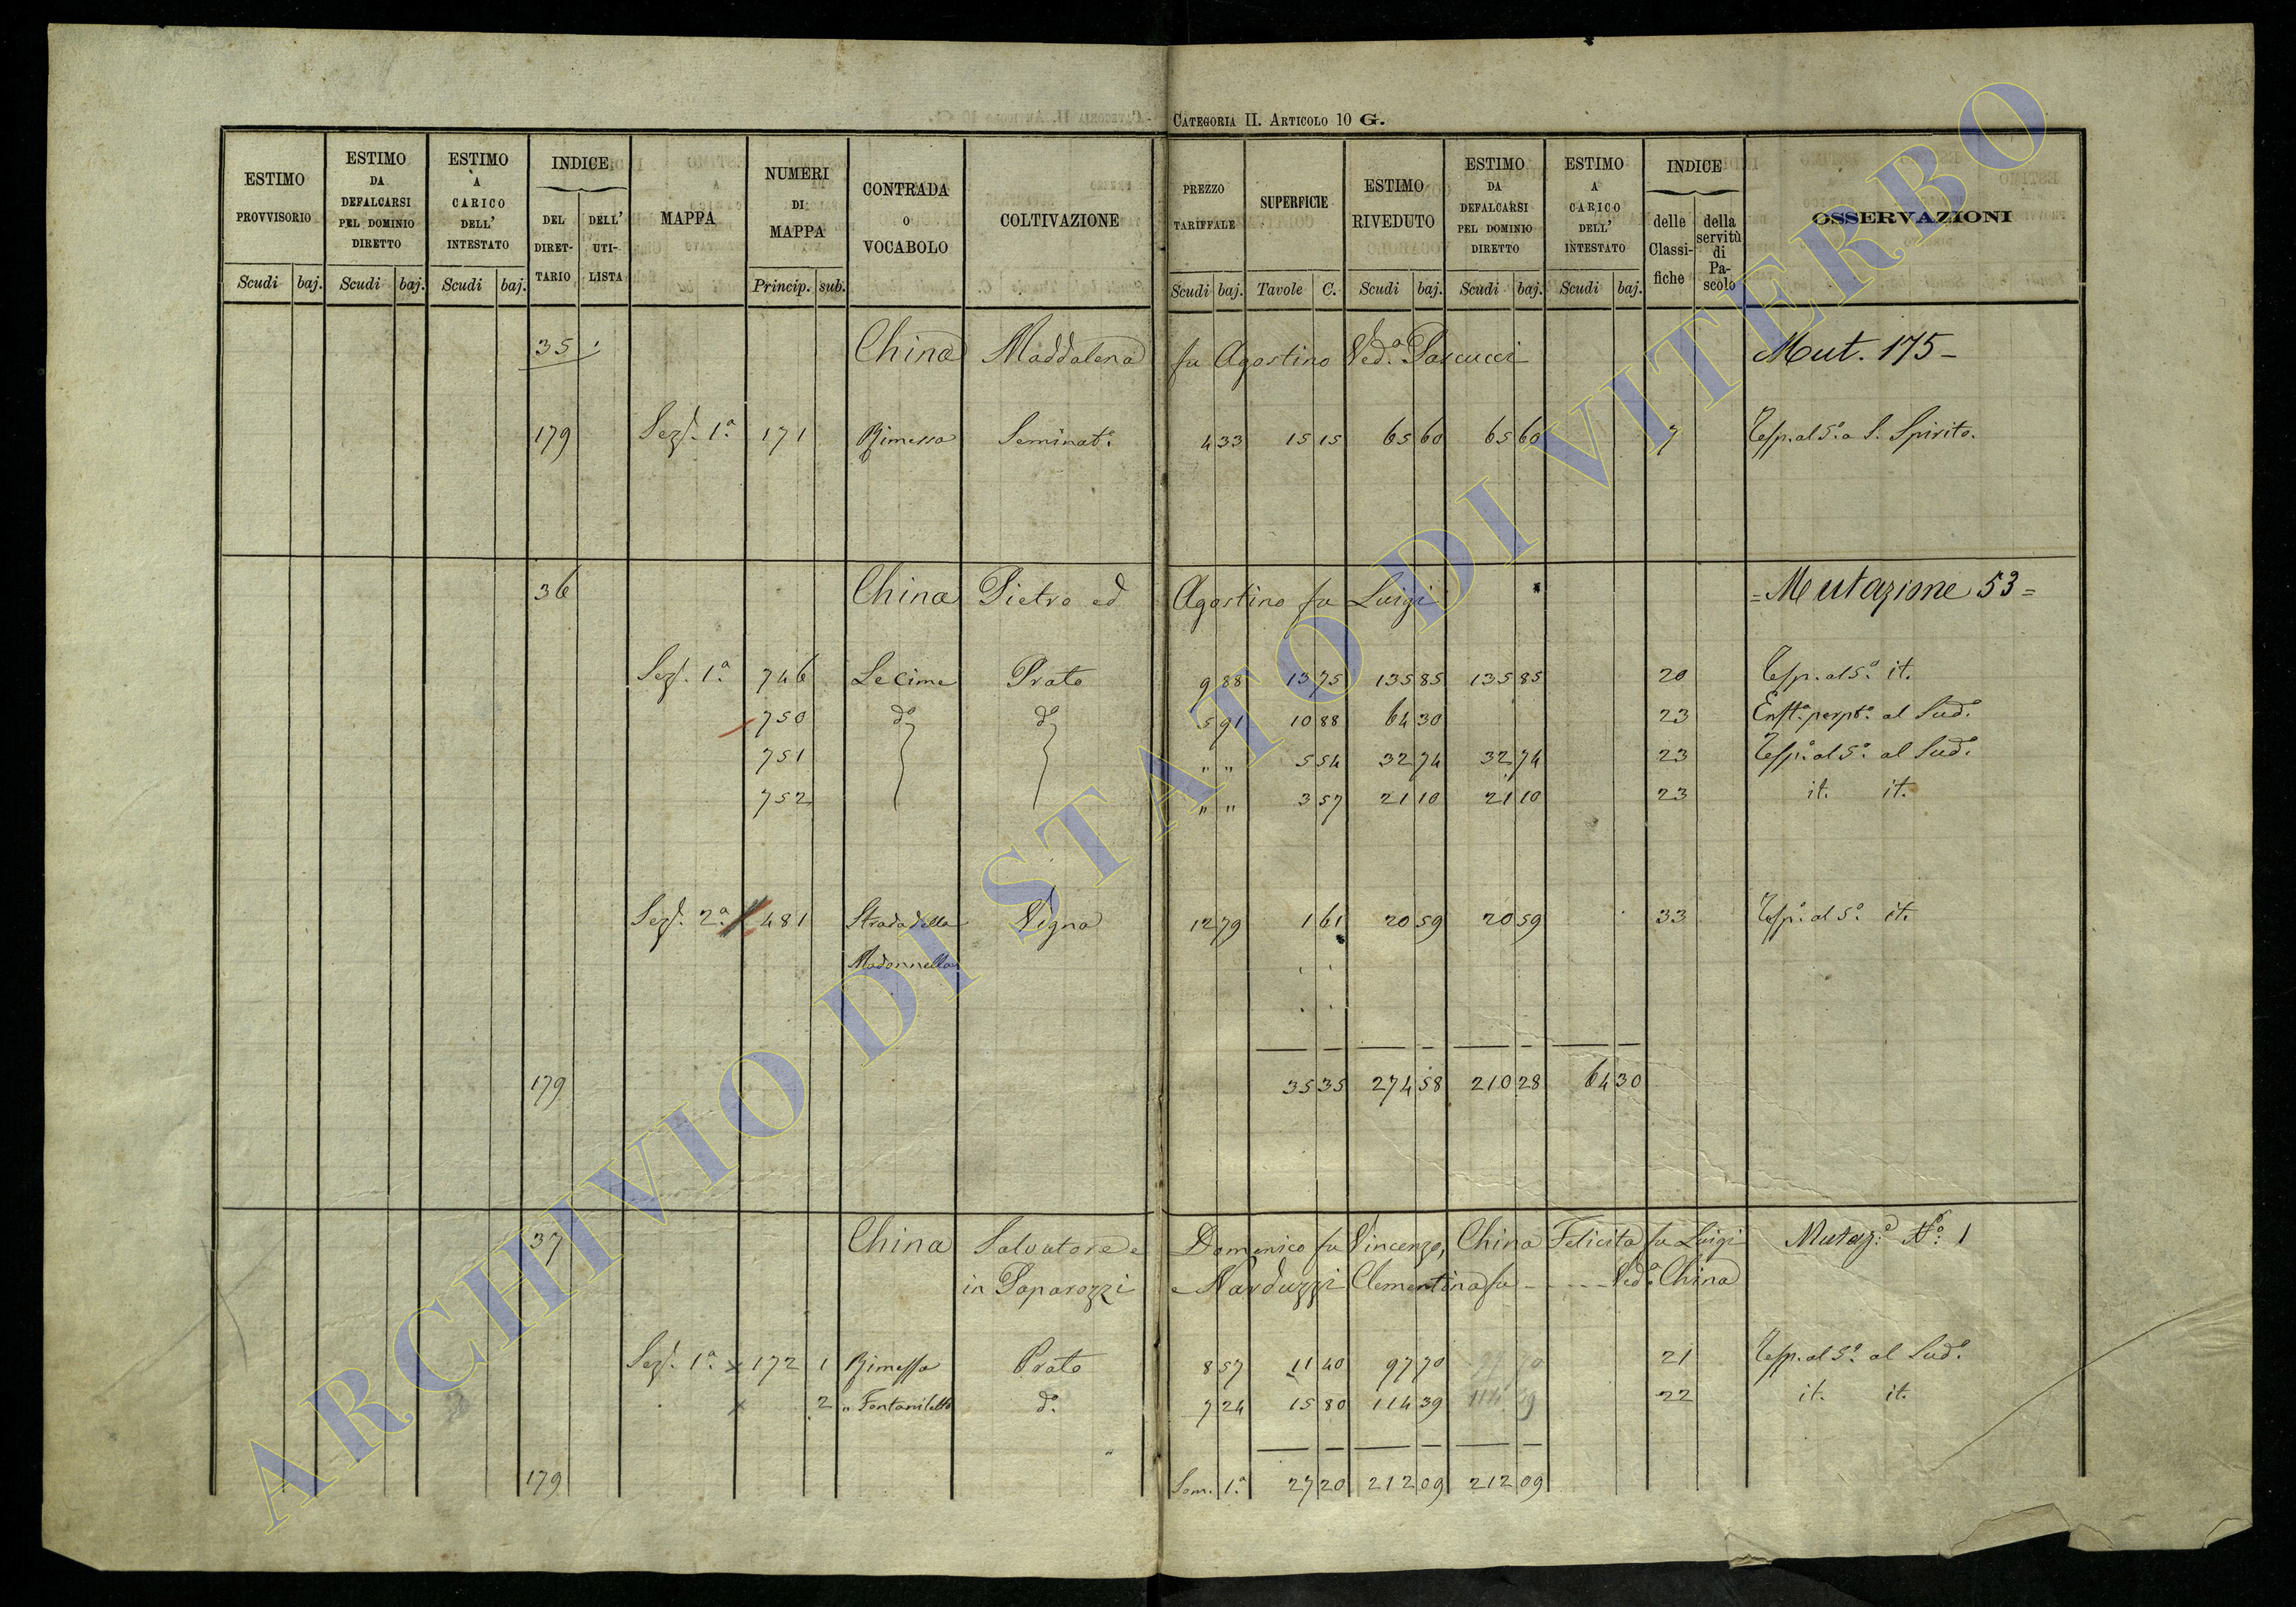 CATEGORIA II. ARTICOLO 10 G.
ESTIMO PROVVISORIO Scudi baj.
ESTIMO DA DEFALCARSI PEL DOMINIO DIRETTO Scudi baj.
ESTIMO A CARICO DELL' INTESTATO Scudi baj.
INDICE DEL DIRETTARIO DELL' UTILISTA
MAPPA
NUMERI DI MAPPA Princip. sub.
CONTRADA O VOCABOLO
COLTIVAZIONE
PREZZO TARIFFALE Scudi baj.
SUPERFICIE Tavole C.
ESTIMO RIVEDUTO Scudi baj.
ESTIMO DA DEFALCARSI PEL DOMINIO DIRETTO Scudi baj.
ESTIMO A CARICO DELL' INTESTATO Scudi baj.
INDICE delle Classifiche della servitù di Pascolo
OSSERVAZIONI
35 China Maddalena fu Agostino Ved.a Pascucci Mut. 175-
179 Sez. 1a 171 Rimessa Seminat.o 4 33 15 15 65 60 65 60 7 Resp. al 5o a S. Spirito.
36 China Pietro ed Agostino fu Luigi =Mutazione 53=
Sez. 1a 746 Le Cime Prato 9 88 13 75 135 85 135 85 20 Resp. al 5o it.
750 do do 5 91 10 88 64 30 23 Enft.a perpt.a al Sud.o
751 " " 5 54 32 74 32 74 23 Resp. al 5o al Sud.o
752 " " 3 57 21 10 21 10 23 it. it.
Sez. 2a 481 Strada della Vigna 12 79 1 61 20 59 20 59 33 Resp. al 5o it.
Madonnella
179 35 35 274 58 210 28 64 30
37 China Salvatore e Domenico fu Vincenzo, China Felicita fu Luigi Mutaz.e No. 1
in Paparozzi e Narduzzi Clementina fu - - - - Ved.a China
Sez. 1a x 172 1 Rimessa Prato 8 57 11 40 97 70 97 70 21 Resp. al 5o al Sud.o
x 2 " Fontaniletto do 7 24 15 80 114 39 114 39 22 it. it.
179 Som. 1a 27 20 212 09 212 09
ARCHIVIO DI STATO DI VITERBO